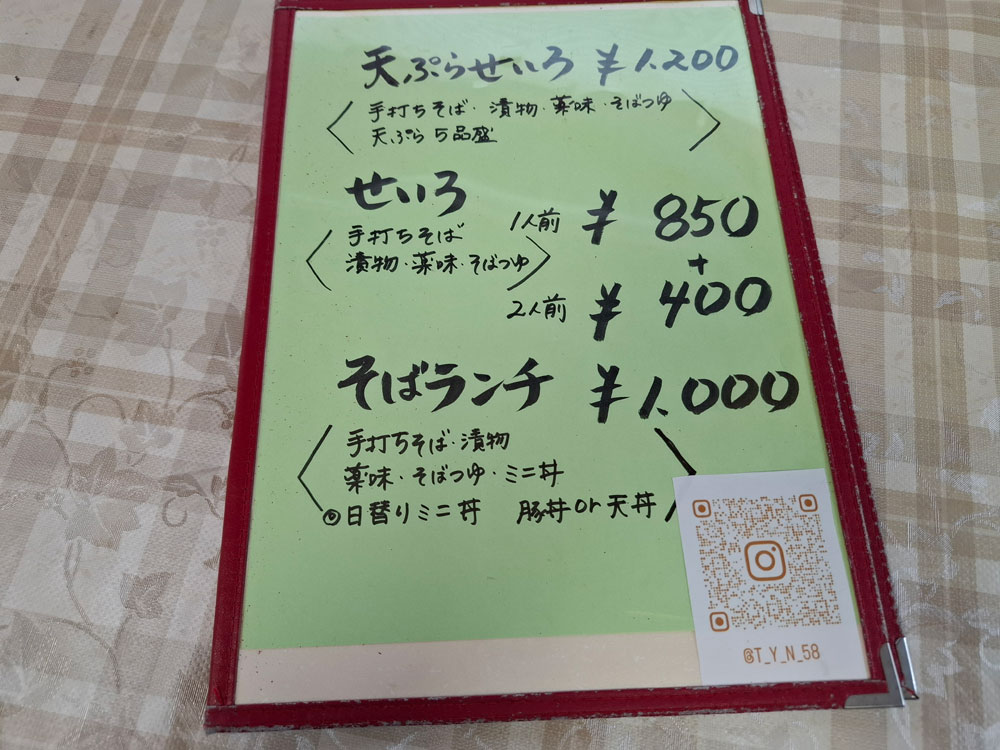 天ぷらせいろ ¥1.200
手打ちそば・漬物・薬味・そばつゆ
天ぷら5品盛
せいろ
1人前 ¥850
手打ちそば
漬物・薬味・そばつゆ
+
2人前 ¥400
そばランチ ¥1.000
手打ちそば・漬物
薬味・そばつゆ・ミニ丼
◎日替りミニ丼 豚丼or天丼
@T_Y_N_58